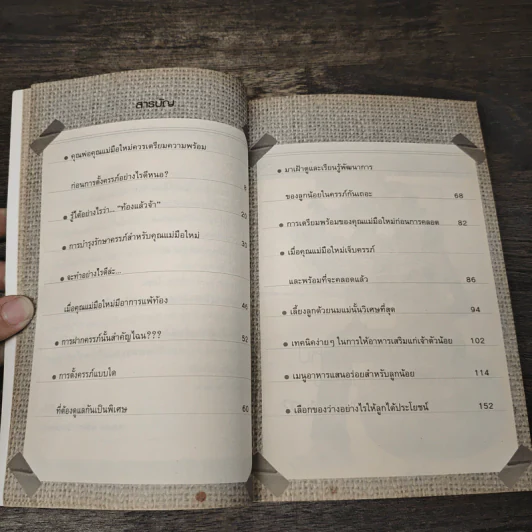 สารบัญ
คุณพ่อคุณแม่มือใหม่ควรเตรียมความพร้อม
ก่อนการตั้งครรภ์อย่างไรดีหนอ?
รู้ได้อย่างไรว่า... "ท้องแล้วจ้า" 20
การบำรุงรักษาครรภ์สำหรับคุณแม่มือใหม่
จะทำอย่างไรดีล่ะ...
เมื่อคุณแม่มือใหม่มีอาการแพ้ท้อง 46
การฝากครรภ์นั้นสำคัญไฉน??? 52
การตั้งครรภ์แบบใด
ที่ต้องดูแลกันเป็นพิเศษ 60
มาเฝ้าดูและเรียนรู้พัฒนาการ
ของลูกน้อยในครรภ์กันเถอะ 68
การเตรียมพร้อมของคุณแม่มือใหม่ก่อนการคลอด 82
เมื่อคุณแม่มือใหม่เจ็บครรภ์
และพร้อมที่จะคลอดแล้ว 86
เลี้ยงลูกด้วยนมแม่นั้นวิเศษที่สุด 94
เทคนิคง่ายๆ ในการให้อาหารเสริมแก่เจ้าตัวน้อย 102
เมนูอาหารแสนอร่อยสำหรับลูกน้อย 114
เลือกของว่างอย่างไรให้ลูกได้ประโยชน์ 152